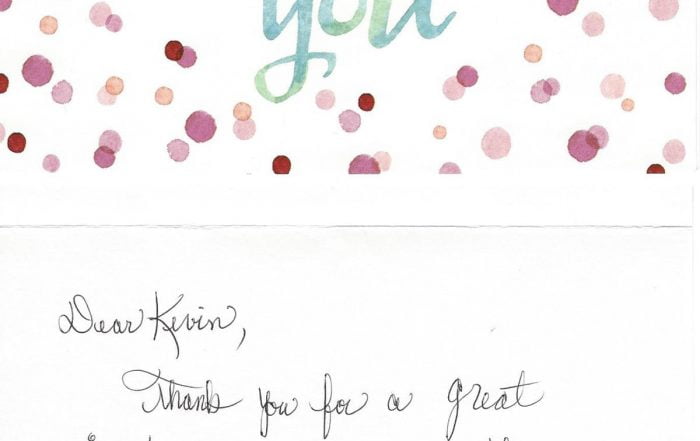 you
Dear Kevin,
Thank you for a great